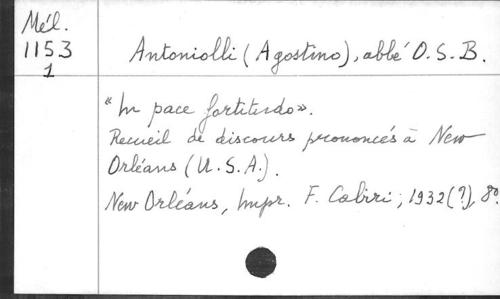 Mél.
1153
1
Antoniolli (Agostino), abbé O.S.B.
"In pace fortitudo".
Recueil de discours prononcés à New
Orléans (U.S.A.).
New Orléans, Impr. F. Cabiri; 1932(?), 8º.